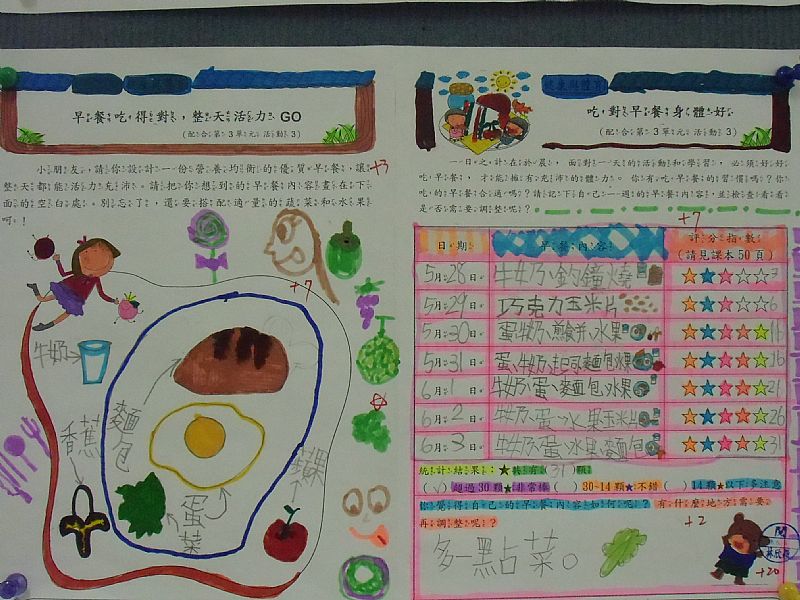 早餐吃得對，整天活力 GO
(配合第3單元活動3)
小朋友，請你設計一份營養均衡的優質早餐，讓
整天都能活力充沛。請把你想到的早餐內容畫在下
面的空白處。別忘了，還要搭配適量的蔬菜和水果
呵！
+3
+7
牛奶
麵包
香蕉
蛋
菜
蘋果
健康與體育
吃對早餐身體好
(配合第3單元活動3)
一日之計在於晨，面對一天的活動和學習，必須好好
吃早餐，才能擁有充沛的體力。你有吃早餐的習慣嗎？你
吃的早餐合適嗎？請記下自己一週的早餐內容，並檢查看看
是否需要調整呢？
+7
日期 早餐內容 評分指數
(請見課本50頁)
5月28日 牛奶、銅鑼燒 ★★★☆☆ 3
5月29日 巧克力玉米片 ★★★☆☆
5月30日 蛋、牛奶、煎餅、水果 ★★★★★ 11
5月31日 蛋、牛奶、起司麵包、水果 ★★★★★ 16
6月1日 牛奶、蛋、麵包、水果 ★★★★★ 21
6月2日 牛奶、蛋、水果、玉米片 ★★★★★ 26
6月3日 牛奶、蛋、水果、麵包 ★★★★★ 31
統計結果：★共有(31)顆
(✓)超過30顆★非常棒 ( )30~14顆★不錯 ( )14顆★以下多注意
你覺得自己的早餐內容如何呢？有什麼地方需要
再調整呢？
+2
多一點菜。
閱
+20